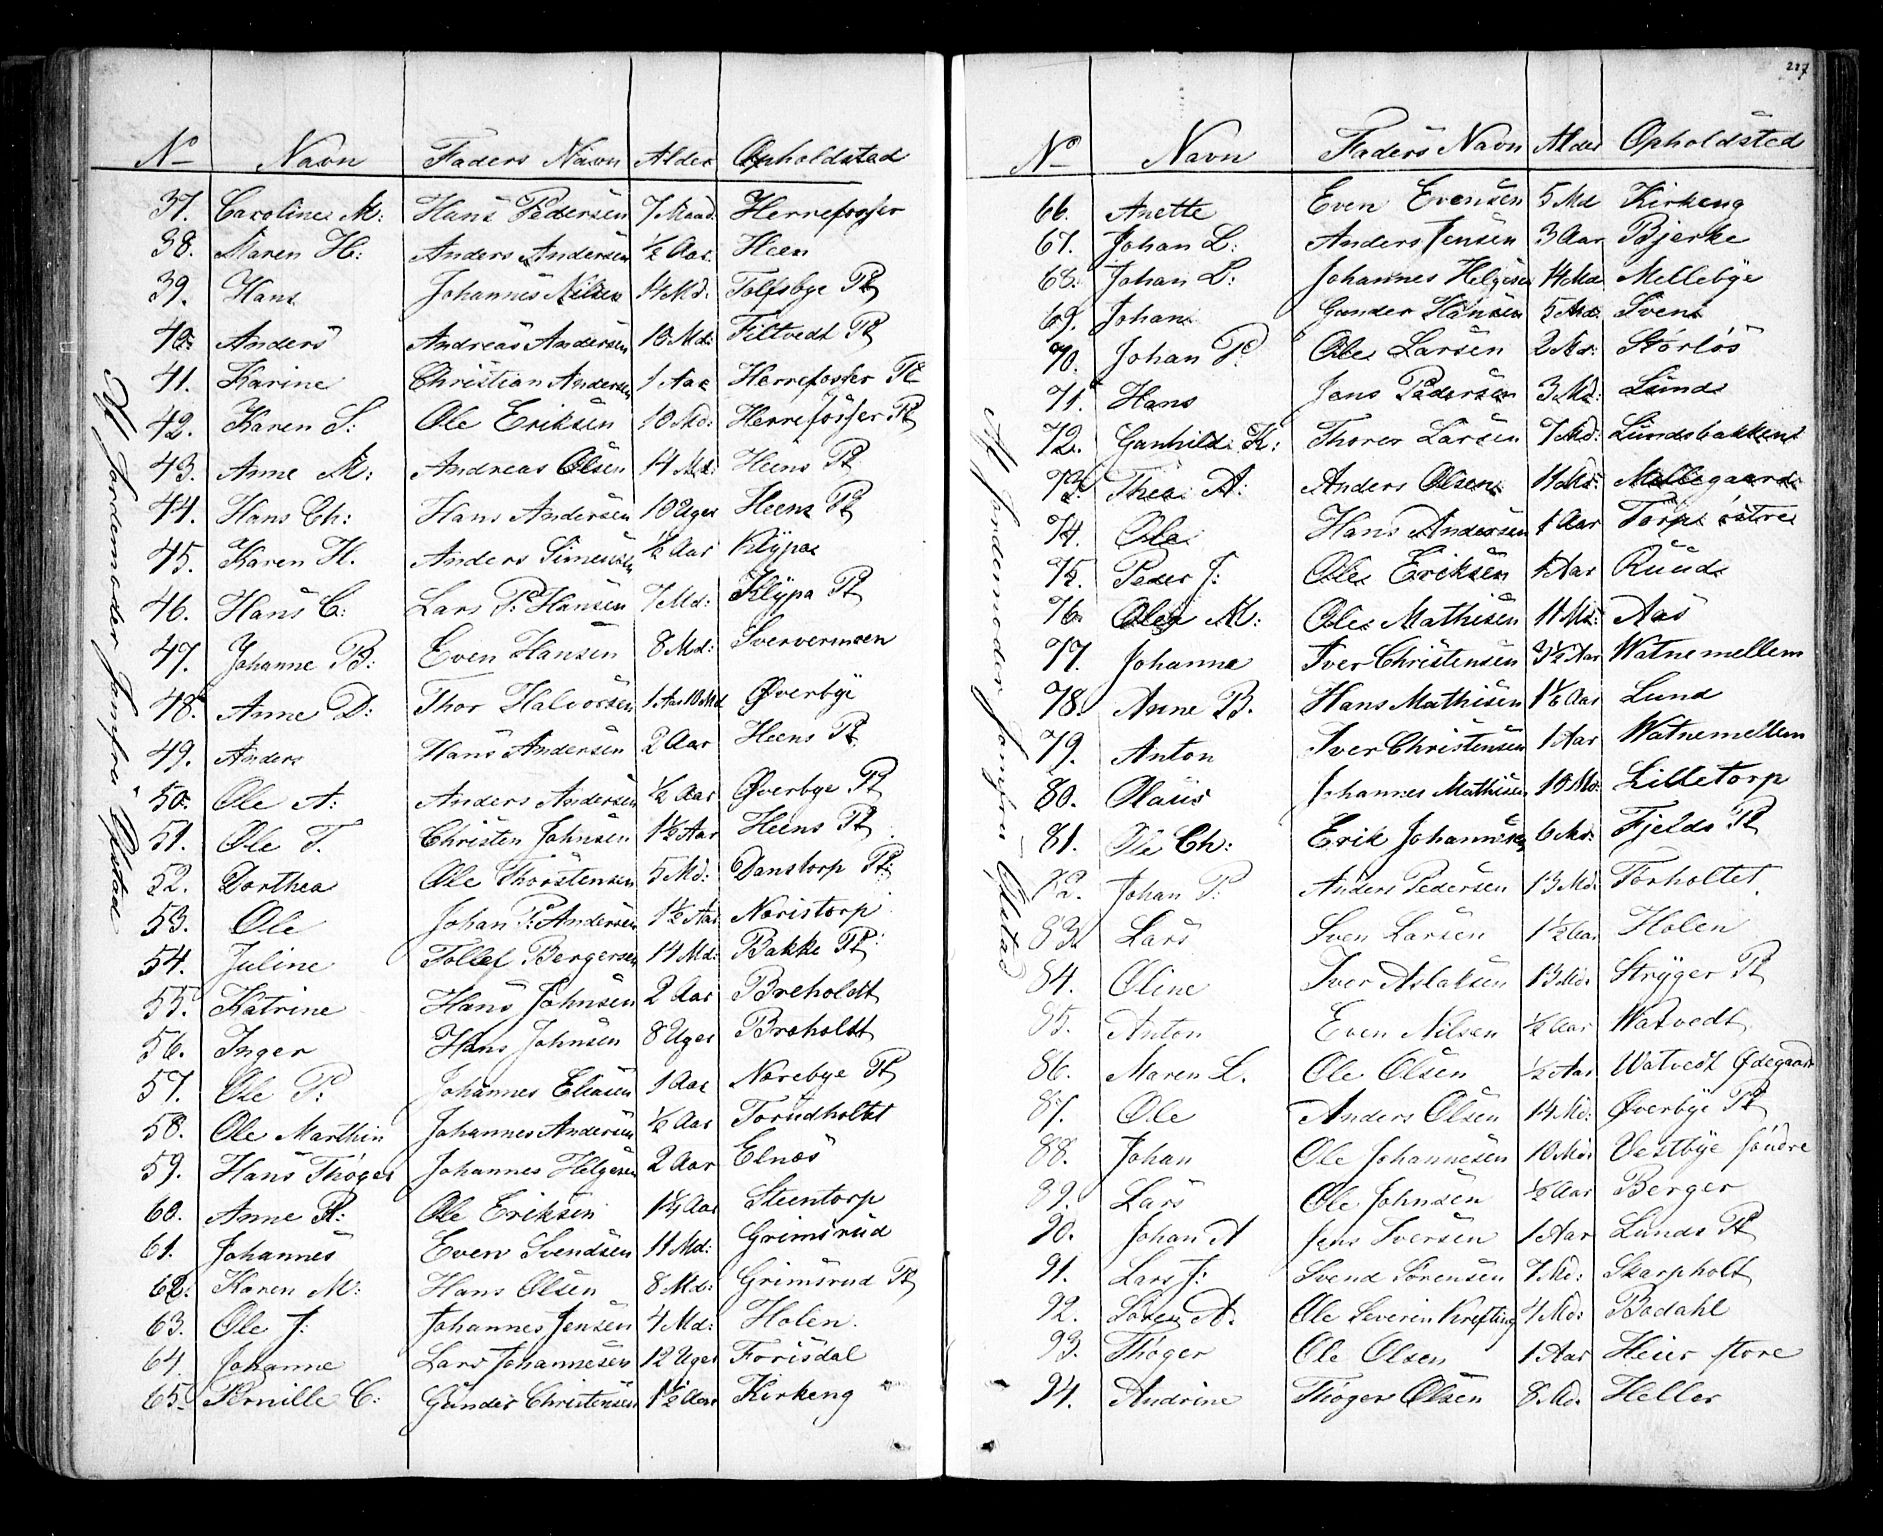 No Navn Faders Navn Alder Opholdsted
37. Caroline M: Hans Pedersen 7 Maad. Herrefosser
38. Maren H: Anders Andersen ½ Aar Heen
39. Hans Johannes Nilsen 14 Md: Tolfsbye Pl
40. Anders Andreas Andersen 10 Md: Filtvedt Pl
41. Karine Christian Andersen 1 Aar Herrefosser Pl
42. Karen S: Ole Eriksen 10 Md: Herrefosser Pl
43. Anne M: Andreas Olsen 14 Md: Heens Pl
44. Hans Ch: Hans Andersen 10 Uger Heens Pl
45. Karen H. Anders Simensen ½ Aar Klypa
46. Hans C: Lars P: Hansen 7 Md: Klypa Pl
47. Johanne B: Even Hansen 8 Md:
48. Anne D: Thor Halvorsen 1 Aar 10 Md Øverbye
49. Anders Hans Andersen 2 Aar Heens Pl
50. Ole A: Anders Andersen ½ Aar Øverbye Pl
51. Ole T. Christen Johnsen 1½ Aar Heens Pl
52. Dorthea Ole Thorstensen 5 Md: Danstorp Pl:
53. Ole Johan P: Andersen 1½ Aar Noristorp
54. Juline Tollef Bergersen 14 Md: Bakke Pl
55. Katrine Hans Johnsen 2 Aar Breholdt
56. Inger Hans Johnsen 8 Uger Broholdt
57. Ole P: Johannes Eliasen 1 Aar Norebye Pl
58. Ole Marthin Johannes Andersen ½ Aar Torudholtet
59. Hans Thøger Johannes Helgesen 2 Aar Elnæs
60. Anne R: Ole Eriksen 1¼ Aar Steentorp
61. Johannes Even Svendsen 11 Md: Grimsrud
62. Karen M: Hans Olsen 8 Md: Grimsrud Pl
63. Ole J: Johannes Jensen 4 Md: Holen.
64. Johanne Lars Johannesen 12 Uger Forisdal
65. Pernille C: Gunder Christensen 1½ Aar Kirkeng
Af Jordemoder Jomfru Ølstad
227
No Navn Faders Navn Alder Opholdsted
66. Anette Even Evensen 5 Md Kirkeng
67. Johan L: Anders Jensen 3 Aar Bjerke
68. Johan L: Johannes Helgesen 14 Md Mellebye
69. Johan Gunder Hansen 5 Md. Svens
70. Johan P. Ole Larsen 2 Md: Storløs
71. Hans Jens Pedersen 3 Md: Lund
72. Gunhild K: Thorer Larsen 7 Md: Lundsbakken
73. Thea A: Anders Olsen 11 Md: Mellegaard
74. Ole Hans Andersen 1 Aar Torp østre
75. Peder J: Ole Eriksen 1 Aar Ruud
76. Oleg M: Ole Mathisen 11 Md: Aas
77. Johanna Iver Christensen 3½ Aar Watnemellem
78. Anne B. Hans Mathisen 1½ Aar Lund
79. Anton Iver Christensen 1 Aar Watnemellem
80. Olaus Johannes Mathisen 10 Md: Lilletorp
81. Ole Ch: Erik Johannesen 6 Md: Fjelds Pl
82. Johan P: Anders Pedersen 13 Md: Torholtet
83. Lars Sven Larsen 1½ Aar Holen
84. Oline Iver Aslaksen 13 Md: Stryger Pl
85. Anton Even Nilsen ½ Aar Watvedt
86. Maren L. Ole Olsen ½ Aar Watvedt Ødegaard
87. Ole Anders Olsen 14 Md: Øverbye Pl
88. Johan Ole Johannesen 10 Md: Vestbye søndre
89. Lars Ole Johnsen ½ Aar Berger
90. Johan A Jens Iversen 1 Aar Lunds Pl
91. Lars J: Svend Sørensen 7 Md: Skarpholt
92. Soren A. Ole Severin Krefting 4 Md: Bodahl
93. Thøger Ole Olsen 1 Aar Heier store
94. Andrine Thøger Olsen 8 Md. Heller
Af Jordemoder Jomfru Ølstad